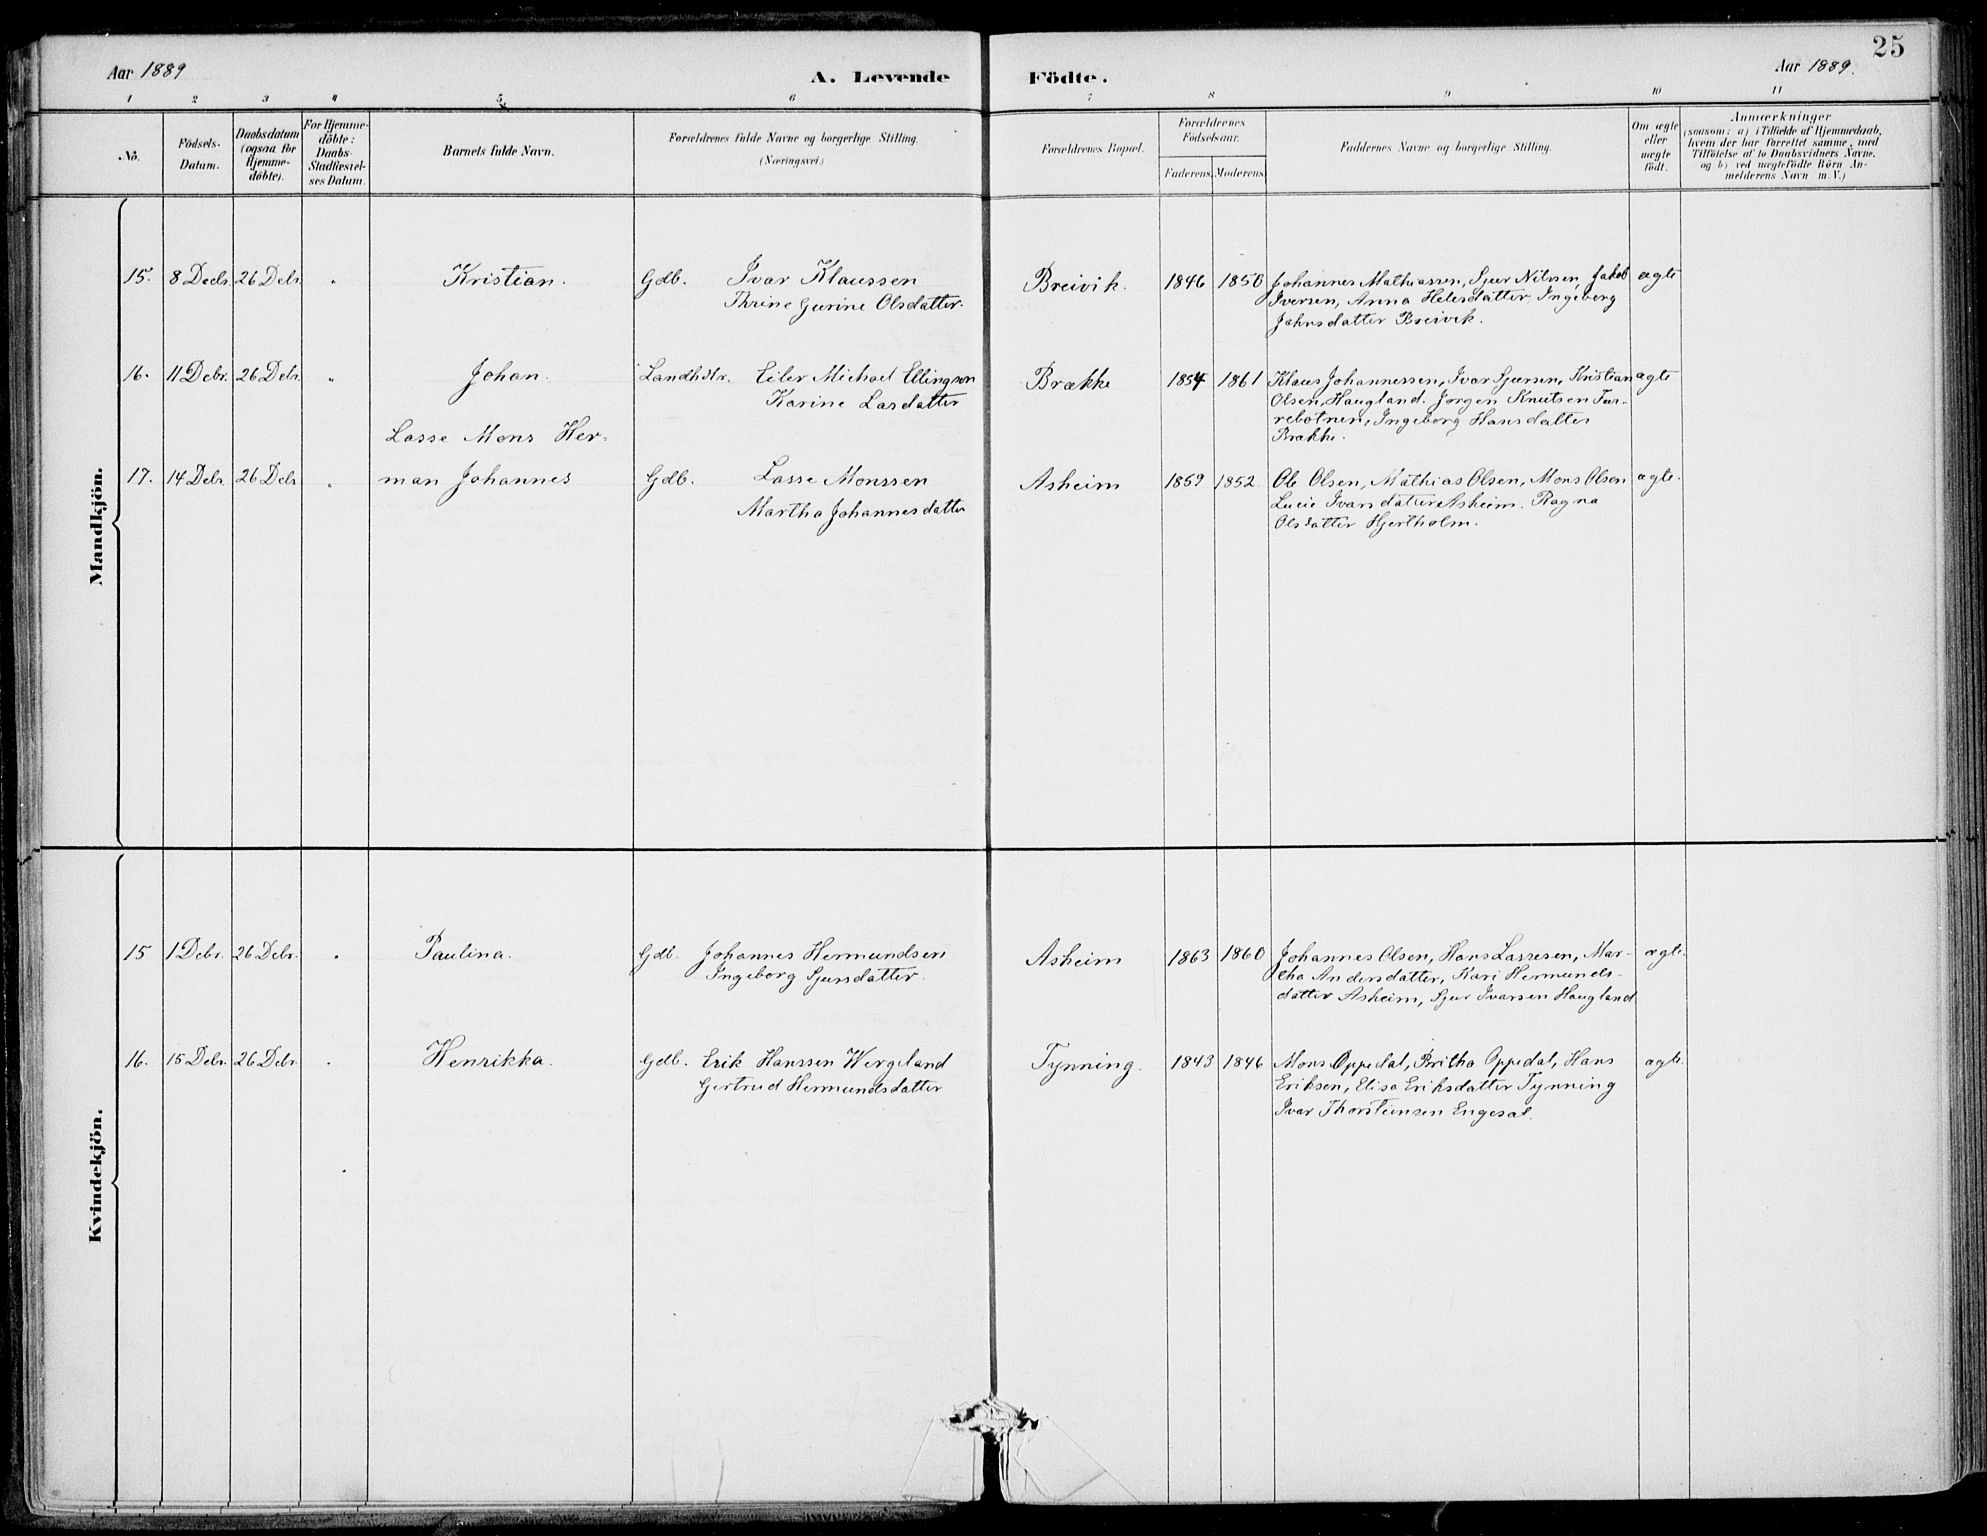 Aar 1889
A. Levende
Födte.
Aar 1889.
25
1 2 3 4 5 6 7 8 9 10 11
No.
Födsels-
Datum.
Daabsdatum
(ogsaa for
Hjemme-
döbte).
For Hjemme-
döbte:
Daabs-
Stadfæstel-
ses Datum.
Barnets fulde Navn.
Forældrenes fulde Navne og borgerlige Stilling.
(Næringsvei.)
Forældrenes Bopæl.
Forældrenes
Födselsaar.
Faderens. Moderens.
Faddernes Navne og borgerlige Stilling.
Om ægte
eller
uægte
födt.
Anmærkninger
(saasom: a) i Tilfælde af Hjemmedaab,
hvem der har forrettet samme, med
Tilföielse af to Daabsvidners Navne,
og b) ved uægtefödte Börn An-
melderens Navn m. V.)
Mandkjön.
15. 8 Decbr. 26 Debr. " Kristian. Gdb. Ivar Klaussen
Thrine Gurine Olsdatter.
Breivik. 1846 1850
Johannes Mathiassen, Sjur Nilsen, Jakob
Iversen, Anna Helesdatter, Ingeborg
Johnsdatter Breivik.
ægte
16. 11 Debr. 26 Debr. " Johan. Landhdlr. Eiler Michael Ellingsen
Karine Lasdatter
Brække 1854 1861
Klaus Johannessen, Ivar Sjursen, Kristian
Olsen, Haugland. Jørgen Knutsen Tur-
rebotnen, Ingeborg Hansdatter
Brække.
ægte
Lasse Mons Her-
17. 14 Debr. 26 Debr " man Johannes Gdb. Lasse Monssen
Martha Johannesdatter
Asheim 1859 1852
Ole Olsen, Mathias Olsen, Mons Olsen
Lucie Ivarsdatter Asheim. Ragna
Olsdatter Hjertholm.
ægte.
Kvindekjön.
15 1 Debr. 26 Debr. " Paulina. Gdb. Johannes Hermundsen
Ingeborg Sjursdatter.
Asheim 1863 1860
Johannes Olsen, Hans Lassesen, Mar-
tha Andersdatter, Kari Hermunds-
datter Asheim, Sjur Ivarsen Haugland
ægte.
16. 15 Debr. 26 Debr. " Henrikka. Gdb. Erik Hanssen Wergeland
Gertrud Hermundsdatter
Tynning. 1843 1846
Mons Oppedal, Britha Oppedal, Hans
Eriksen, Elisa Eriksdatter Tynning
Ivar Thorsteinsen Engesæt.
ægte.